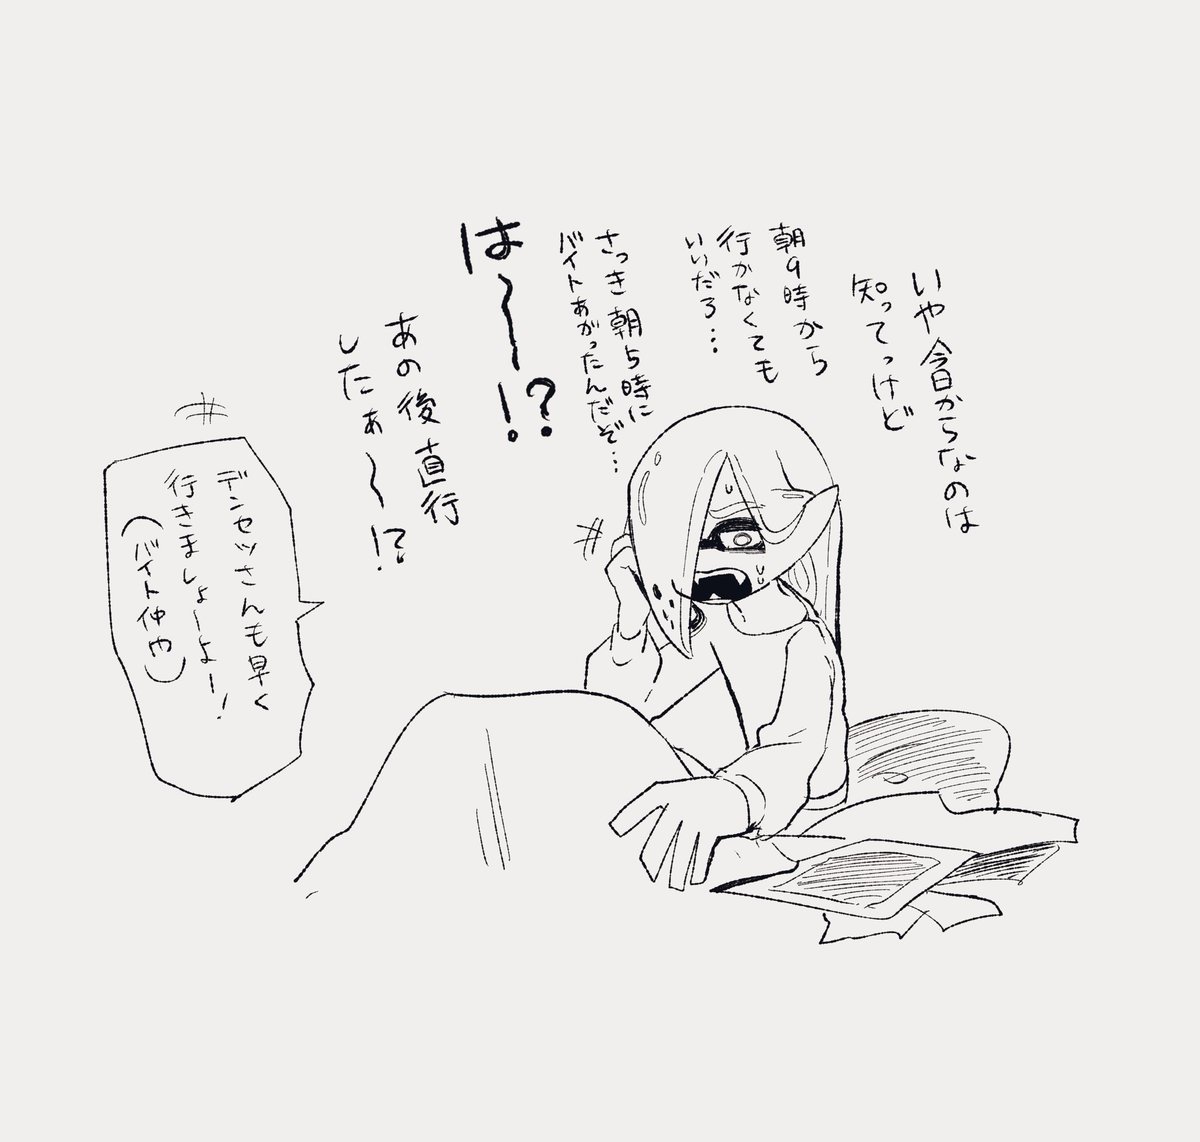 いや今日からなのは
知ってっけど
朝9時から
行かなくても
いいだろ…
さっき朝5時に
バイトあがったんだぞ…
は〜!?
あの後直行
したぁ〜!?
デンセツさんも早く
行きましょーよー!
(バイト仲間)